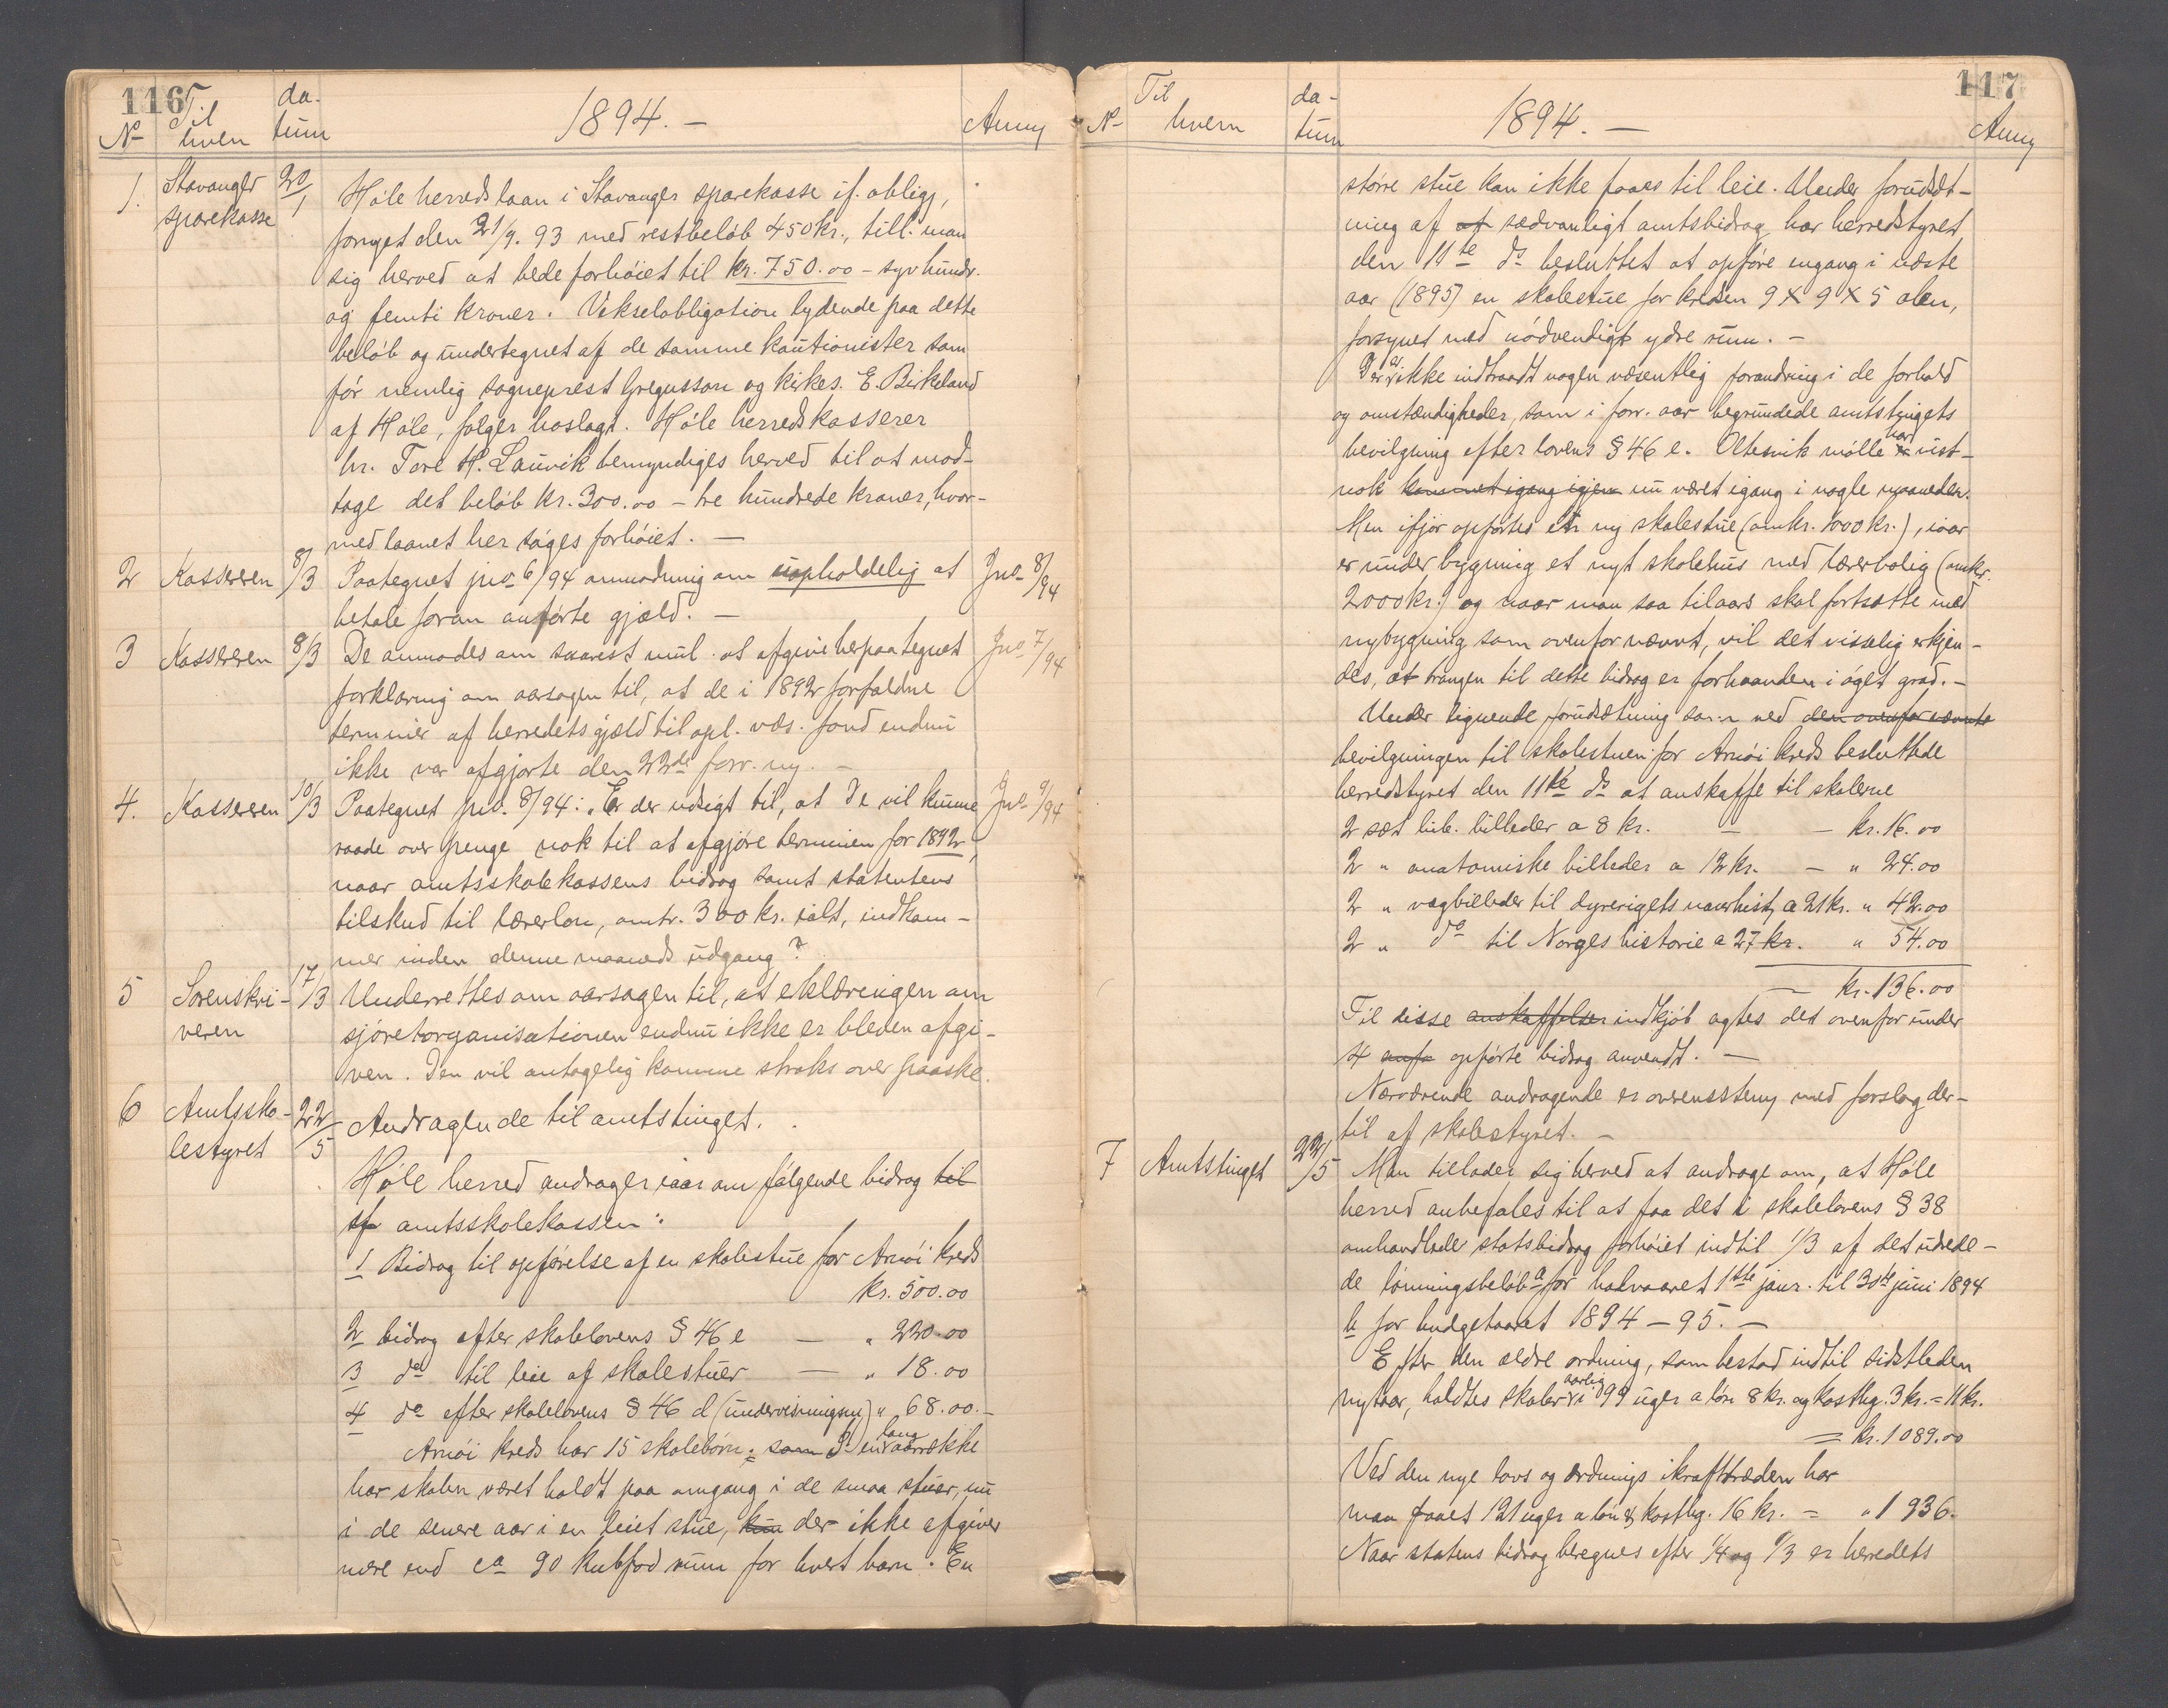 116
No Til hven datum 1894. — Anm
1. Stavanger sparekasse 20/1 Höle herreds laan i Stavanger sparekasse if. obligj,
fornyet den 21/9. 93 med restbelöb 450 kr., till. man
sig herved at bede forhöiet til kr. 750.00 - syv hundr.
og femti kroner. Vekselobligation lydende paa dette
belöb og undertegnet af de samme kautionister som
för nemlig sogneprest Gregussøn og kirkes. E. Birkeland
af Höle, fölger hoslagt. Höle herredskasserer
hr. Tore H. Lauvik bemyndiges herved til at mod-
tage det belöb kr. 300.00 - tre hundrede kroner, hvor-
med laanet her söges forhöiet. —
2 Kassereren 8/3 Paategnet jno 6/94 anmodning om uopholdelig at Jno 8/94
betale foran anförte gjæld. —
3 Kassereren 8/3 De anmodes om snarest mul. at afgive herpaategnet Jno 7/94
forklaring om aarsagen til, at de i 1892 forfaldne
terminer af herredets gjæld til opl. væs. fond endnu
ikke var afgjorte den 22de forr. ny. —
4. Kassereren 10/3 Paategnet jno. 8/94: "Er der udsigt til, at De vil kunne Jno 9/94
raade over penge nok til at afgjöre terminen for 1892,
naar amtsskolekassens bidrag samt statentens
tilskud til lærerlön, omtr. 300 kr. ialt, indkom-
mer inden denne maaneds udgang?
5 Sorenskri- 17/3 Underrettes om aarsagen til, at erklæringen om
veren sjöretorganisationen endnu ikke er bleven afgi-
ven. Den vil antagelig komme straks over paaske.
6 Amtssko- 22/5 Andragende til amtstinget.
lestyret
Höle herred andrager iaar om fölgende bidrag til
af amtsskolekassen:
1 Bidrag til opförelse af en skolestue for Arnöi kreds
kr. 500.00
2 bidrag efter skolelovens § 46 e — " 220.00
3 do til leie af skolestuer — " 18.00
4 do efter skolelovens § 46 d (undervisningsm) " 68.00.-
Arnöi kreds har 15 skolebörn; som I en lang aarrække
har skolen været holdt paa omgang i de smaa stuer, nu
i de senere aar i en leiet stue, kun der ikke afgiver
mere end ca 90 kubfod rum for hvert barn. En
117
No Til hvem datum 1894. — Anm
större stue kan ikke faaes til leie. Under forudsæt-
ning af af sædvanligt amtsbidrag har herredstyret
den 11te ds besluttet at opföre engang i næste
aar (1895) en skolestue for kredsen 9 X 9 X 5 alen,
forsynet med nödvendigt ydre rum. —
Der er ikke indtraadt nogen væsentlig forandring i de forhold
og omstændigheder, som i forr. aar begrundede amtstingets
bevilgning efter lovens § 46 e. Oltesvik mölle har vist-
nok kommet igang igjen nu været igang i nogle maaneder.
Men ifjor opförtes en ny skolestue (omkr. 1000 kr.), iaar
er under bygning et nyt skolehus med lærerbolig (omkr.
2000 kr.) og naar man saa tilaars skal fortsætte med
nybygning som ovenfor nævnt, vil det visselig erkjen-
des, at trangen til dette bidrag er forhaanden i öget grad. —
Under lignende forudsætning som ved den ovenfor nævnte
bevilgningen til skolestuen for Arnöi kreds besluttede
herredstyret den 11te ds at anskaffe til skolerne
2 sæt bib. billeder a 8 kr. — — kr. 16.00
2 " anatomiske billeder a 12 kr. — " 24.00
2 " vægbilleder til dyrerigets naturhist, a 21 kr. " 42.00
2 " do til Norges historie a 27 kr. " 54.00
— kr. 136.00
Til disse anskaffelser indkjöb agtes det ovenfor under
4 anfö opförte bidrag anvendt. —
Nærværende andragende er overensstem med forslag der-
til af skolestyret. —
7 Amtstinget 22/5 Man tillader sig herved at andrage om, at Höle
herred anbefales til at faa det i skolelovens § 38
omhandlede statsbidrag forhöiet indtil 1/3 af det udrede-
de lönningsbelöb a for halvaaret 1ste janr. til 30te juni 1894
b for budgetaaret 1894 - 95. —
Efter den ældre ordning, som bestod indtil sidstleden
nytaar, holdtes skoler aarlig i 99 uger a lön 8 kr. og kosthg. 3 kr. = 11 kr.
= kr. 1089.00
Ved den nye lovs og ordnings ikrafttræden har
man faaet 121 uger a lön & kosthg. 16 kr. = " 1936.
Naar statens bidrag beregnes efter 1/4 og 1/3 er herredets